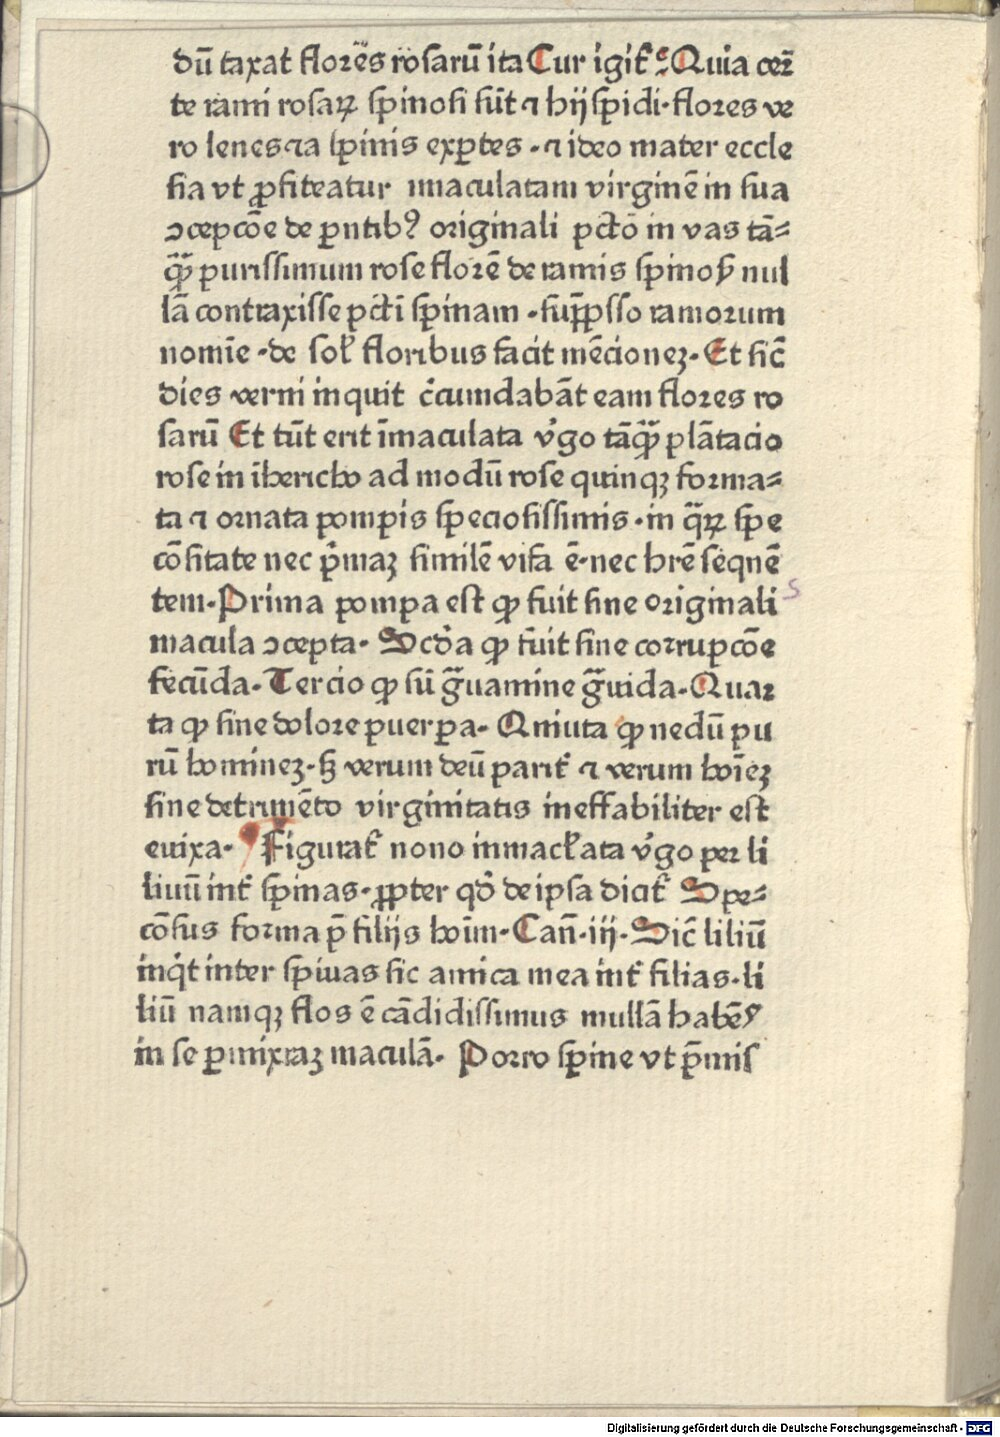 dū taxat flores rosarū ita Cur igit̄ Quia cer̄
te rami rosaꝝ spinosi sūt ⁊ hijspidi·flores ve
ro lenes ⁊ a spinis exꝑtes ·⁊ ideo mater eccle
sia vt ꝓfiteatur imaculatam virginē in sua
ↄcepcōe de ꝑntibꝰ originali pctō in vas tā⸗
qꝫ̄ purissimum rose florē de ramis spinoꝭ nul
lā contraxisse pctī spinam ·supp̄sso ramorum
nomīe ·de sol̄ floribus facit mēcioneꝫ· Et sic̄
dies verni inquit c̄cumdabāt eam flores ro
sarū Et tūt erit īmaculata v̓go tāqꝫ̄ plātacio
rose in ihericho ad modū rose quinqꝫ forma⸗
ta ⁊ ornata pompis speciosissimis ·in qᷓꝝ spe
cōsitate nec p̓maꝫ similē visa ē·nec hrē seqnē
tem·Prima pompa est ꝙ fuit sine originali
macula ↄcepta· Scd̓a ꝙ fuit sine corrupcōe
fecūda· Tercio ꝙ sū gᷓuamine gᷓuida·Quar
ta ꝙ sine dolore puerꝑa· Qniuta ꝙ nedū pu
rū homineꝫ·sꝫ verum deū parit̄ ⁊ verum hoīeꝫ
sine detrimēto virginitatis ineffabiliter est
euixa· Figurat̄ nono inmacl̄ata v̓go per li
liuū int̄ spinas·ꝓpter qd̓ de ipsa dicit̄ Spe⸗
cōsus forma p̄ filijs hoīm·Can̄·iij·Sic̄ liliū
inq̓t inter spiuas sic amica mea int̄ filias·li
liū namqꝫ flos ē cādidissimus mullā habēꝭ
in se ꝑmixtaꝫ maculā· Porro spine vt p̄mis
Digitalisierung gefördert durch die Deutsche Forschungsgemeinschaft - DFG